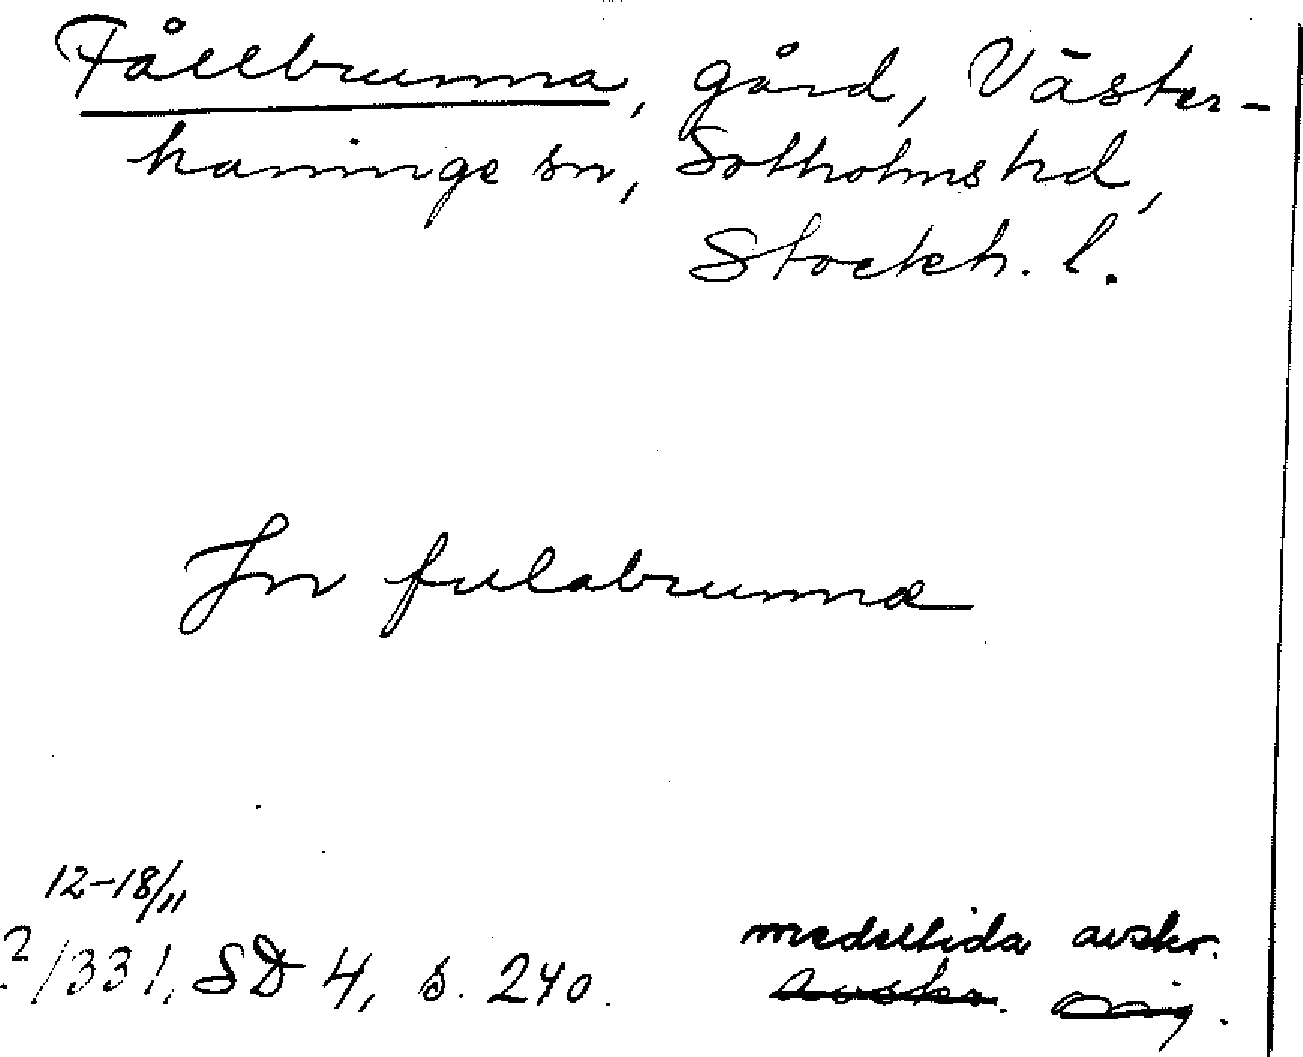 Fållbrunna, gård, Väster-
haninge sn, Sotholms hd,
Stockh. l.
In fulabrunna
12-18/11
?/331, SD 4, s. 240.
medeltida avskr.
avskr. orig.